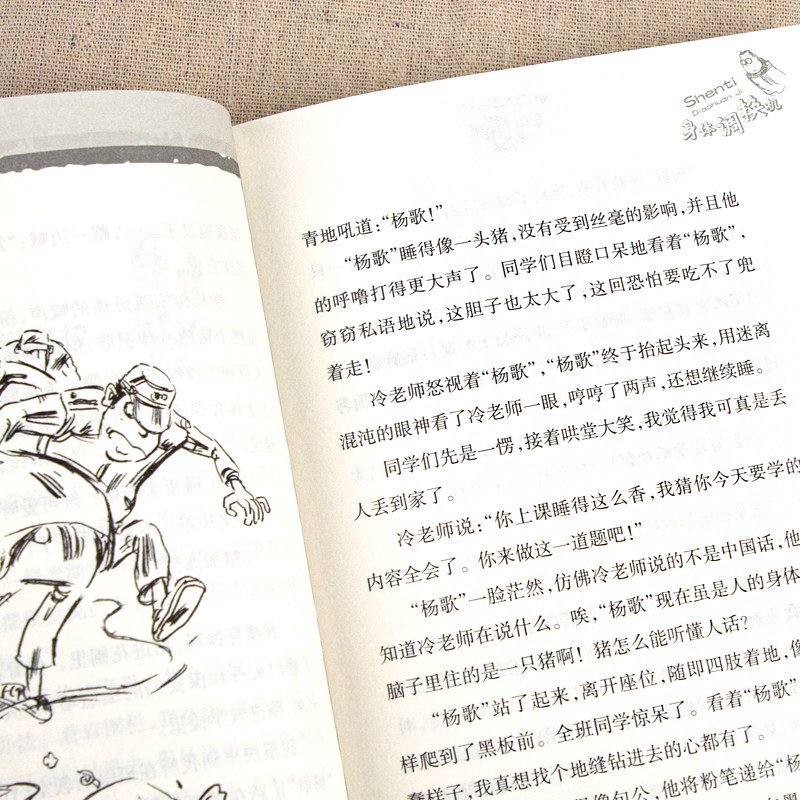 Shenti
Diaohuan Ji
身体调换机
青地吼道：“杨歌！”
“杨歌”睡得像一头猪，没有受到丝毫的影响，并且他
的呼噜打得更大声了。同学们目瞪口呆地看着“杨歌”，
窃窃私语地说，这胆子也太大了，这回恐怕要吃不了兜
着走！
冷老师怒视着“杨歌”，“杨歌”终于抬起头来，用迷离
混沌的眼神看了冷老师一眼，哼哼了两声，还想继续睡。
同学们先是一愣，接着哄堂大笑，我觉得我可真是丢
人丢到家了。
冷老师说：“你上课睡得这么香，我猜你今天要学的
内容全会了。你来做这一道题吧！”
“杨歌”一脸茫然，仿佛冷老师说的不是中国话，他
知道冷老师在说什么。唉，“杨歌”现在虽是人的身体
脑子里住的是一只猪啊！猪怎么能听懂人话？
“杨歌”站了起来，离开座位，随即四肢着地，像
样爬到了黑板前。全班同学惊呆了。看着“杨歌”
蠢样子，我真想找个地缝钻进去的心都有了。
像包公，他将粉笔递给“杨